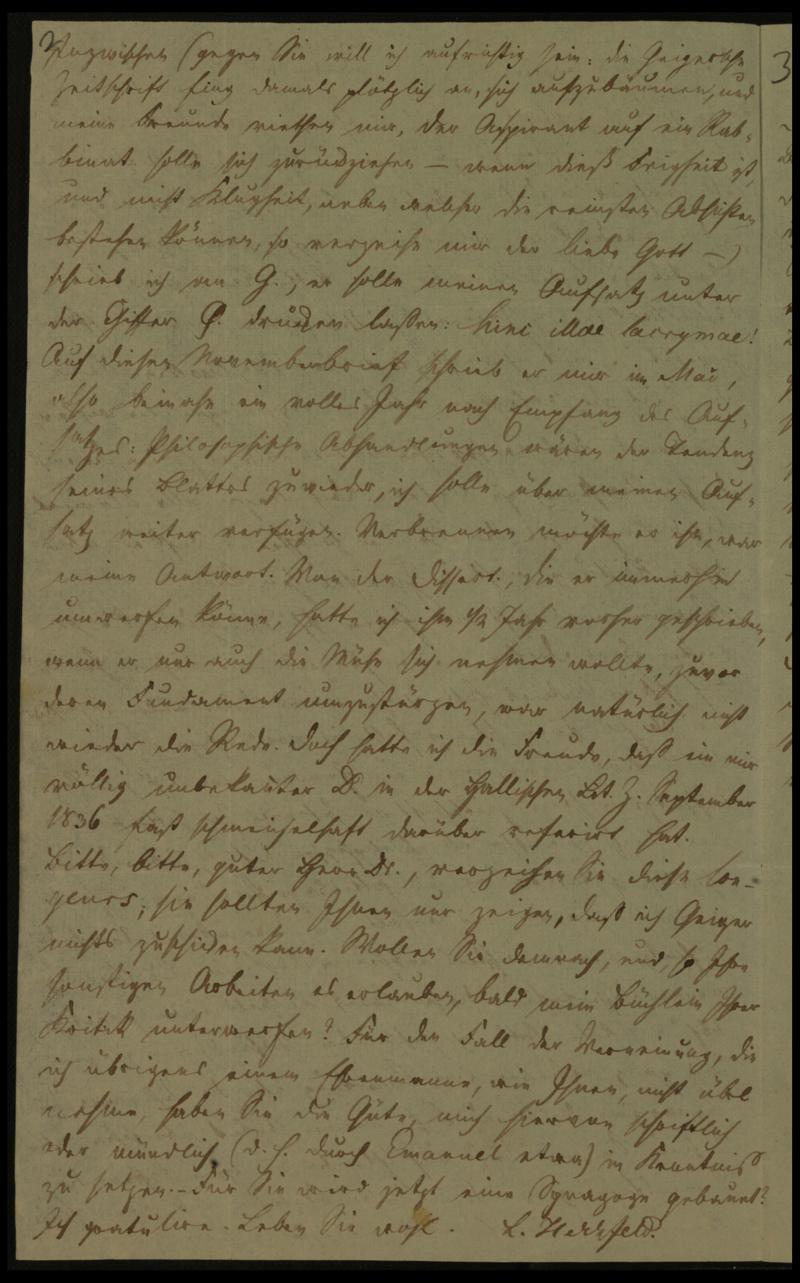 Inzwischen (gegen Sie will ich aufrichtig sein: die Geigersche
Zeitschrift fing damals plötzlich an, sich aufzubäumen, und
meine Freunde riethen mir, der Aspirant auf ein Rab-
binat solle sich zurückziehen — wenn dieß Feigheit ist,
und nicht Klugheit, neben welcher die reinsten Absichten
bestehen können, so verzeihe mir der liebe Gott —)
schrieb ich an G., er solle meinen Aufsatz unter
der Chiffer P. drucken lassen: hinc illae lacrymae!
Auf diesen Novemberbrief schrieb er mir im Mai,
also beinahe ein volles Jahr nach Empfang des Auf-
satzes: Philosophische Abhandlungen wären der Tendenz
seines Blattes zuwieder, ich solle über meinen Auf-
satz weiter verfügen. Verbrennen möchte er ihn, war
meine Antwort. Von der Dissert., die er immerhin
umwerfen könne, hatte ich ihm 1/2 Jahr vorher geschrieben,
wenn er nur auch die Mühe sich nehmen wollte, zuvor
deren Fundament umzustürzen, war natürlich nicht
wieder die Rede. Doch hatte ich die Freude, daß ein mir
völlig unbekanter D. in der Hallischen Lit. Z. September
1836 fast schmeichelhaft darüber referirt hat.
Bitte, bitte, guter Herr Dr., verzeihen Sie diese lon-
geurs; sie sollten Ihnen nur zeigen, daß ich Geiger
nichts zuschicken kann. Wollen Sie demnach, und so Ihre
sonstigen Arbeiten es erlauben, bald mein Büchlein Ihrer
Kritik unterwerfen? Für den Fall der Verneinung, die
ich übrigens einem Ehrenmanne, wie Ihnen, nicht übel
nehme, haben Sie die Güte, mich hiervon schriftlich
oder mündlich (d. h. durch Emanuel etwa) in Kenntniß
zu setzen. – Für Sie wird jetzt eine Synagoge gebauet?
Ich gratulire. Leben Sie wohl. L. Herzfeld.
3